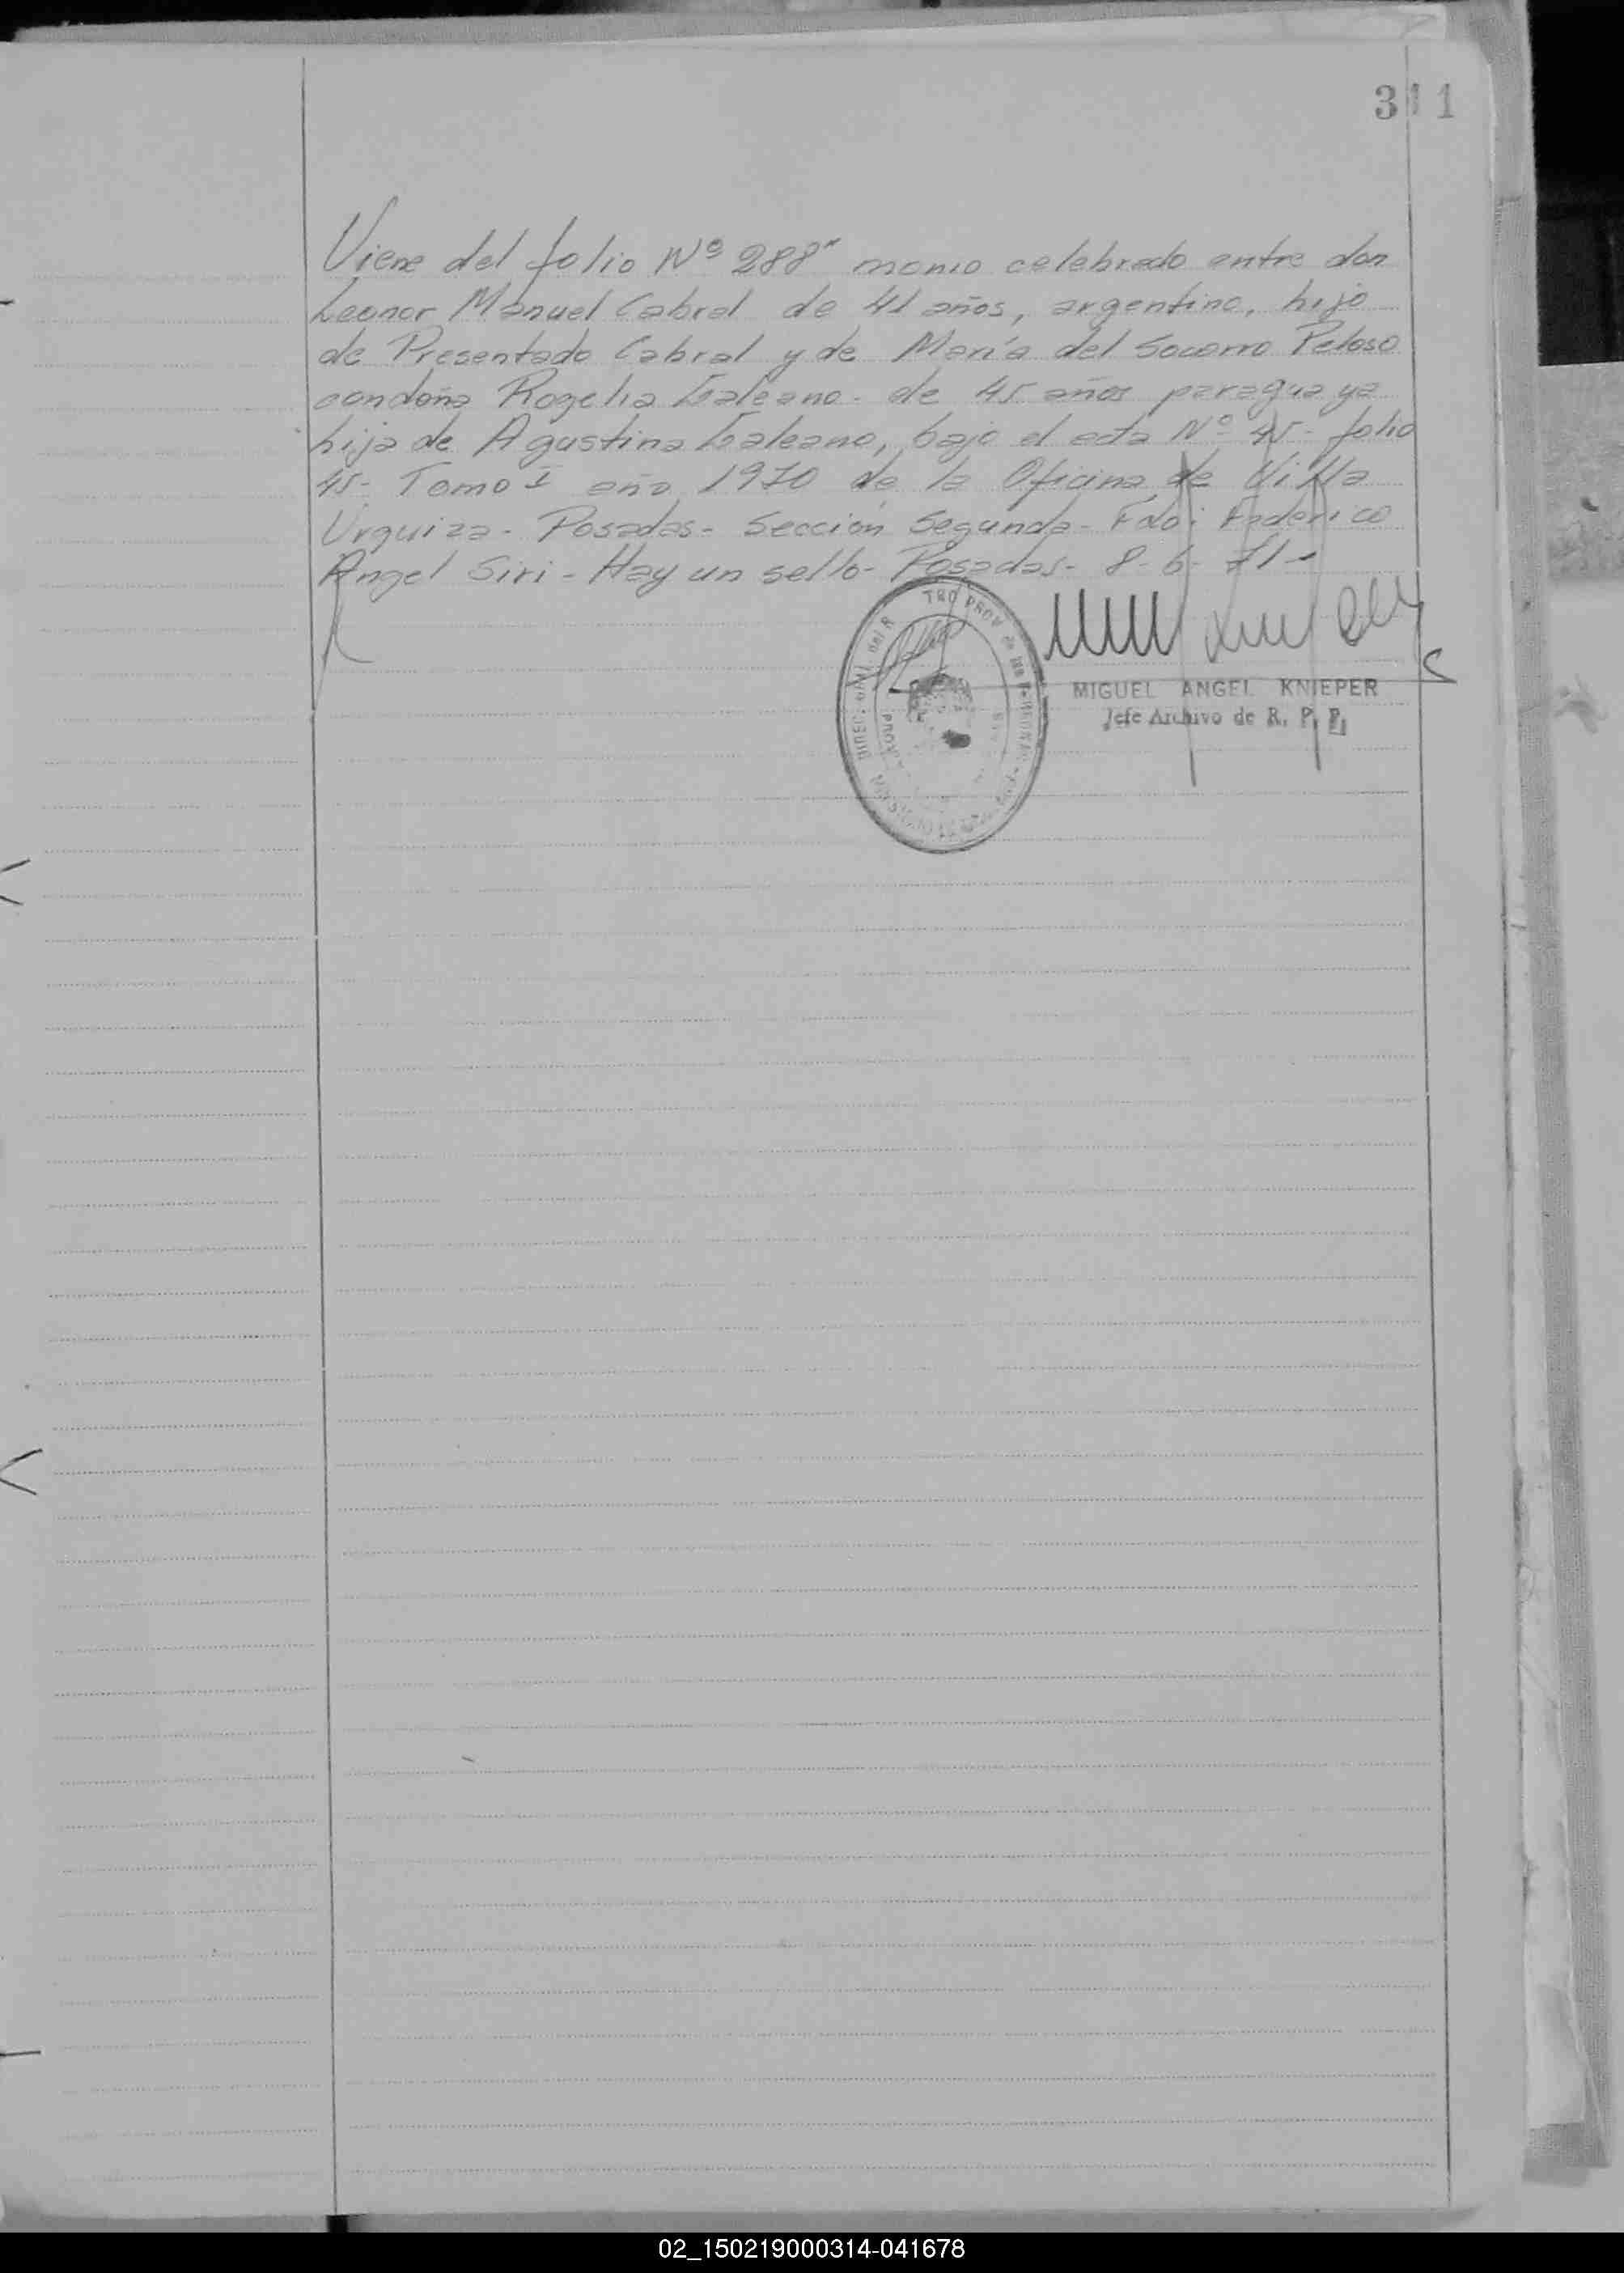 311
Viene del folio Nº 288" monio celebrado entre don
Leonor Manuel Cabral de 41 años, argentino, hijo
de Presentado Cabral y de María del Socorro Peloso
con doña Rogelia Galeano - de 45 años paraguaya
hija de Agustina Galeano, bajo el acta Nº 45 - folio
45 - Tomo I año 1970 de la Oficina de Villa
Urquiza - Posadas - Sección Segunda - Fdo: Federico
Angel Siri - Hay un sello - Posadas - 8 - 6 - 71 -
MIGUEL ANGEL KNIEPER
Jefe Archivo de R. P. P.
02_150219000314-041678